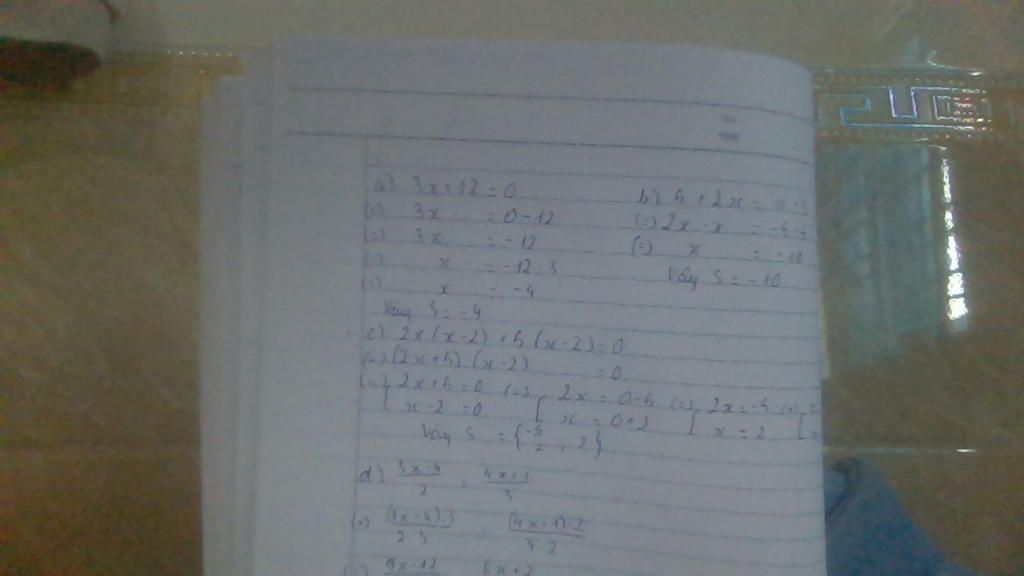 a) 3x+12=0
(=) 3x = 0-12
(=) 3x = -12
(=) x = -12:3
(=) x = -4
Vậy S = -4
b) 5+2x = x-5
(=) 2x-x = -5-5
(=) x = -10
Vậy S = -10
c) 2x(x-2)+5(x-2)=0
(=) (2x+5)(x-2) =0
(=) [2x+5=0 (=) [2x=0-5 (=) [2x=-5 (=) [
x-2=0 x=0+2 x=2
Vậy S = {-5/2, 2}
d) 3x-4/2 = 4x+1/3
(=) (3x-4).3/2.3 = (4x+1).2/3.2
(=) 9x-12 8x+2